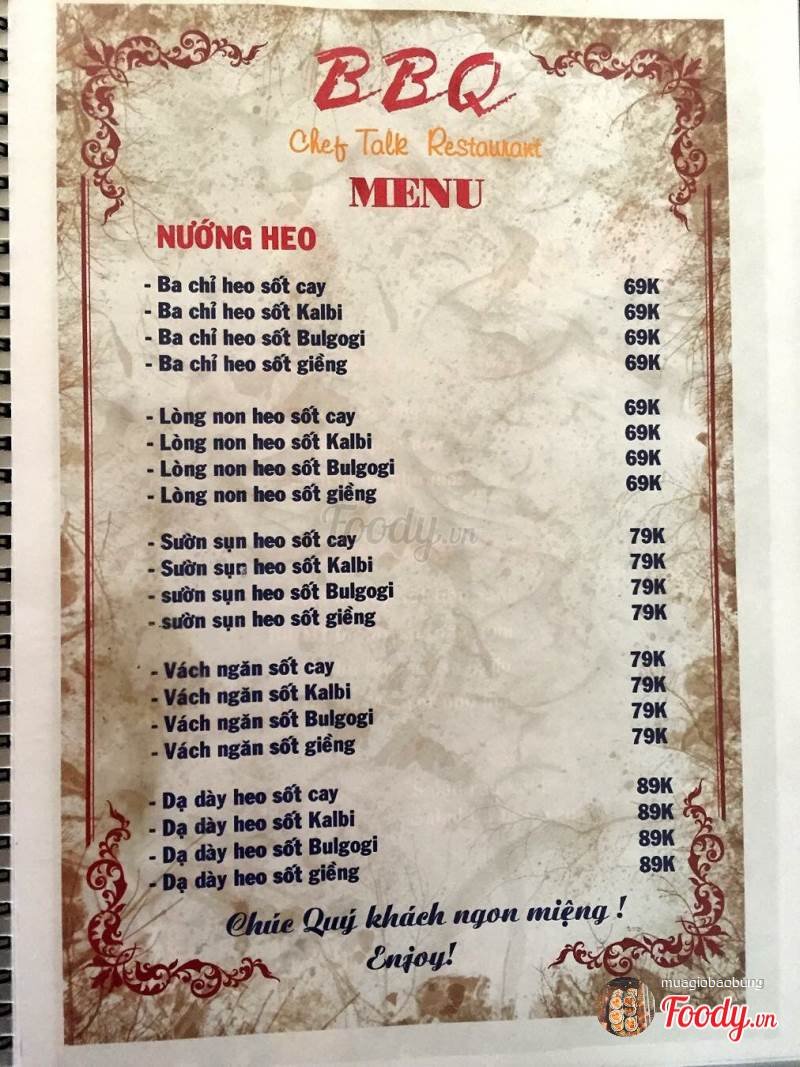 BBQ
Chef Talk Restaurant
MENU
NƯỚNG HEO
- Ba chỉ heo sốt cay 69K
- Ba chỉ heo sốt Kalbi 69K
- Ba chỉ heo sốt Bulgogi 69K
- Ba chỉ heo sốt giềng 69K
- Lòng non heo sốt cay 69K
- Lòng non heo sốt Kalbi 69K
- Lòng non heo sốt Bulgogi 69K
- Lòng non heo sốt giềng 69K
Foody.vn
- Sườn sụn heo sốt cay 79K
- Sườn sụn heo sốt Kalbi 79K
- sườn sụn heo sốt Bulgogi 79K
- sườn sụn heo sốt giềng 79K
- Vách ngăn sốt cay 79K
- Vách ngăn sốt Kalbi 79K
- Vách ngăn sốt Bulgogi 79K
- Vách ngăn sốt giềng 79K
- Dạ dày heo sốt cay 89K
- Dạ dày heo sốt Kalbi 89K
- Dạ dày heo sốt Bulgogi 89K
- Dạ dày heo sốt giềng 89K
Chúc Quý khách ngon miệng !
Enjoy!
muagiobaobung
Foody.vn